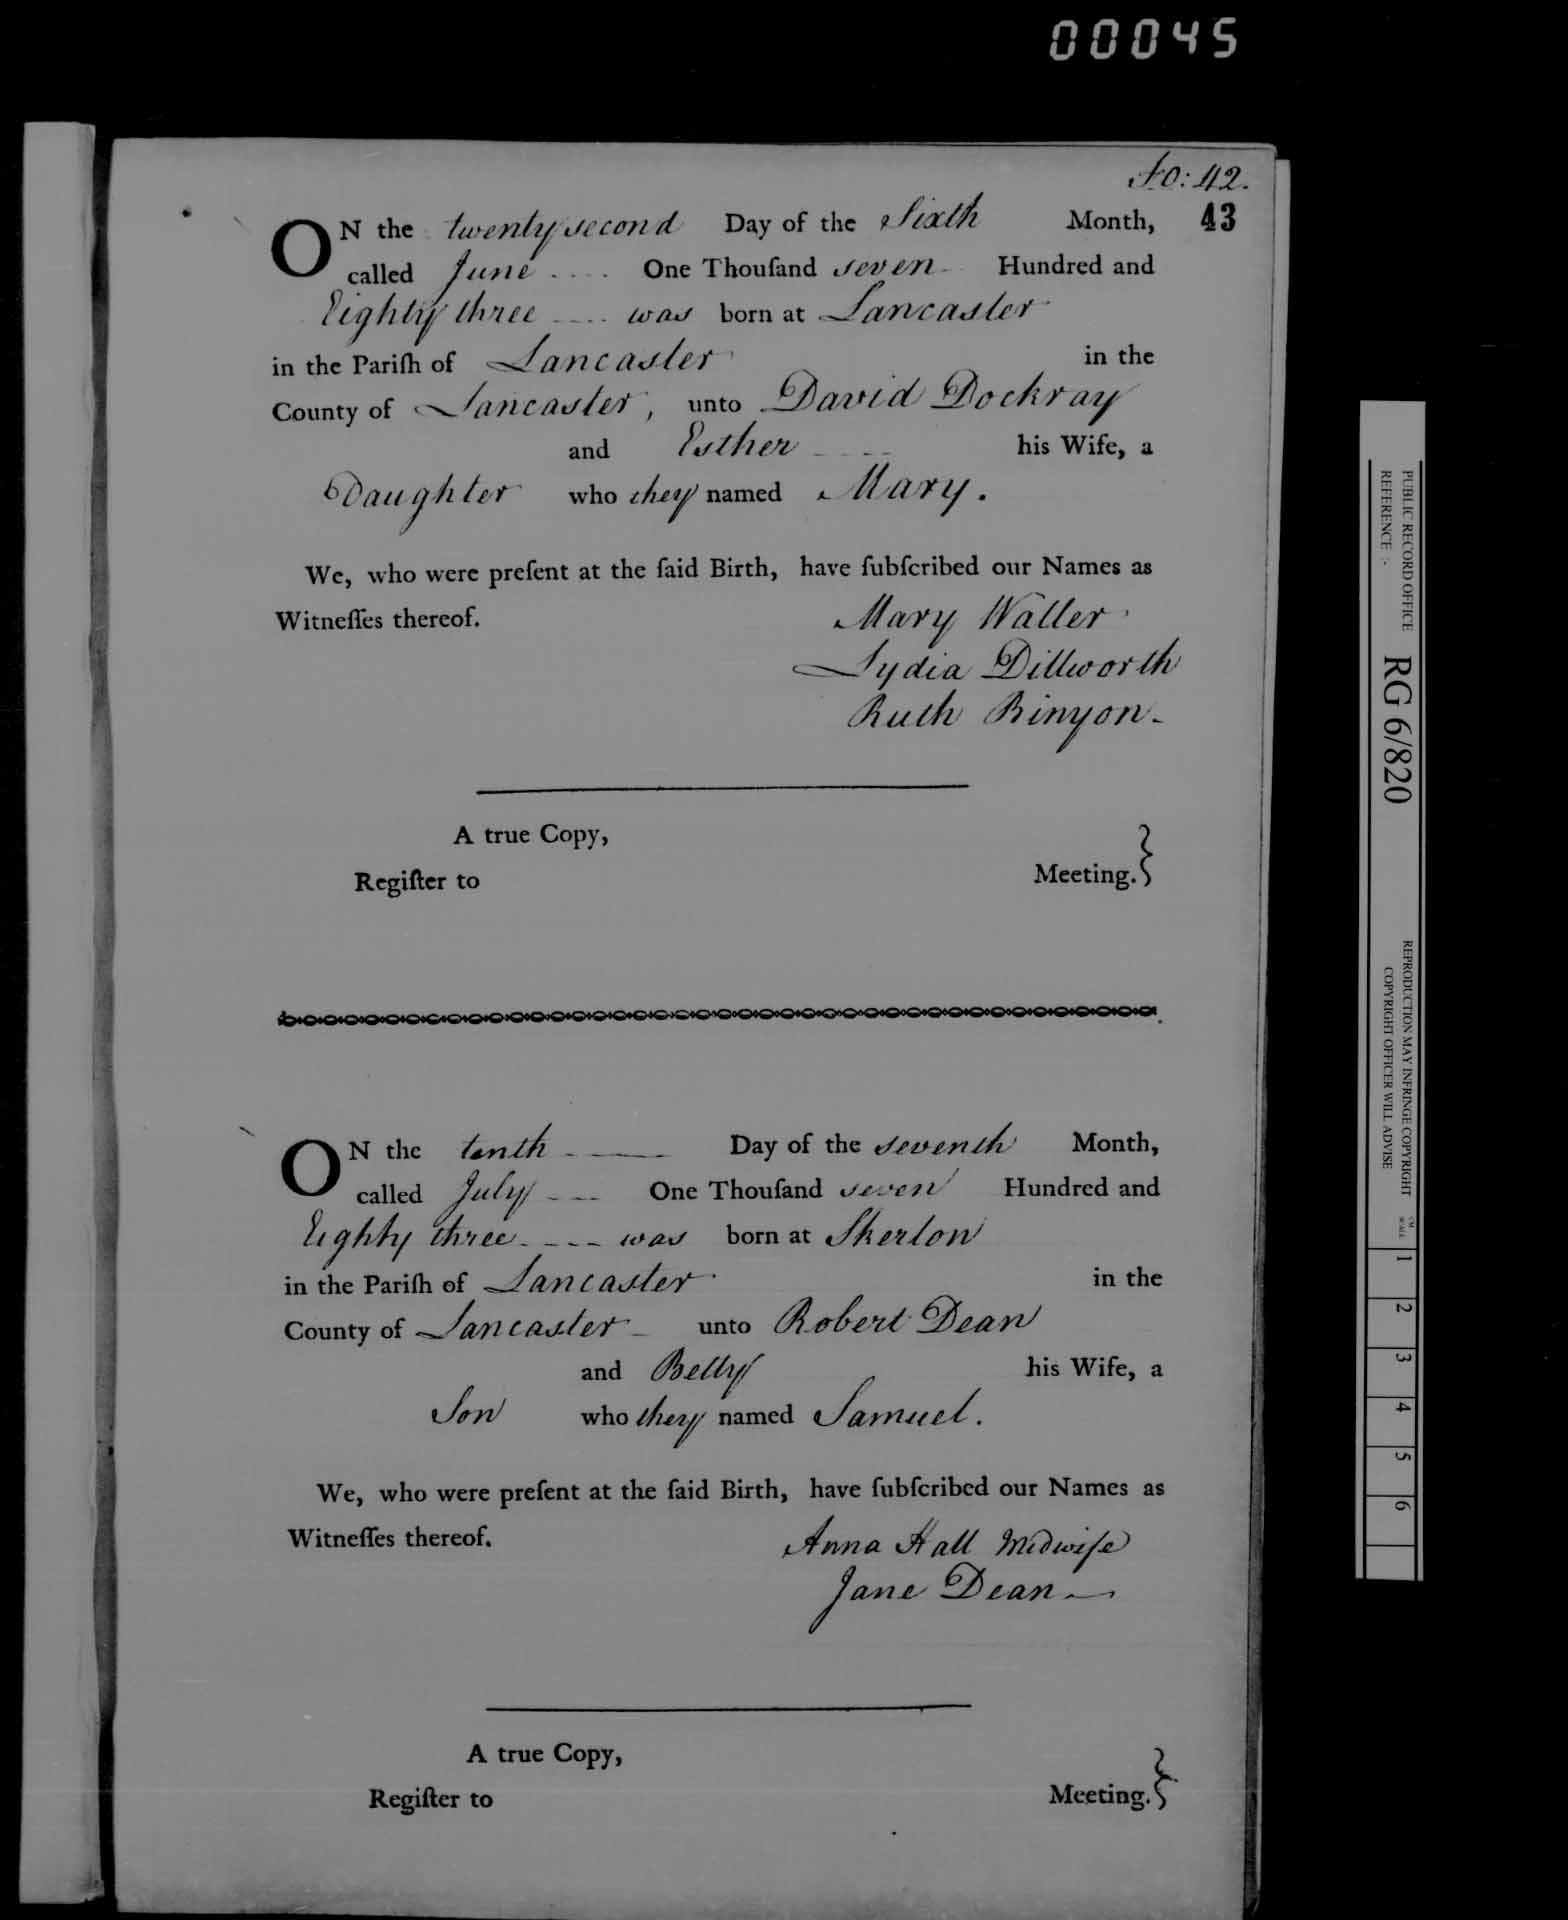 00045
fo: 42.
43
ON the twenty second Day of the Sixth Month,
called June .... One Thouſand seven Hundred and
Eighty three .... was born at Lancaster
in the Pariſh of Lancaster in the
County of Lancaster, unto David Dockray
and Esther .... his Wife, a
Daughter who they named Mary.
We, who were preſent at the ſaid Birth, have ſubſcribed our Names as
Witneſſes thereof.
Mary Waller
Lydia Dillworth
Ruth Binyon
A true Copy,
Regiſter to Meeting.
ON the tenth Day of the seventh Month,
called July ... One Thouſand seven Hundred and
Eighty three .... was born at Skerton
in the Pariſh of Lancaster in the
County of Lancaster unto Robert Dean
and Betty his Wife, a
Son who they named Samuel.
We, who were preſent at the ſaid Birth, have ſubſcribed our Names as
Witneſſes thereof.
Anna Hall Midwife
Jane Dean
A true Copy,
Regiſter to Meeting.
PUBLIC RECORD OFFICE
REFERENCE :-
RG 6/820
REPRODUCTION MAY INFRINGE COPYRIGHT
COPYRIGHT OFFICER WILL ADVISE
1 2 3 4 5 6